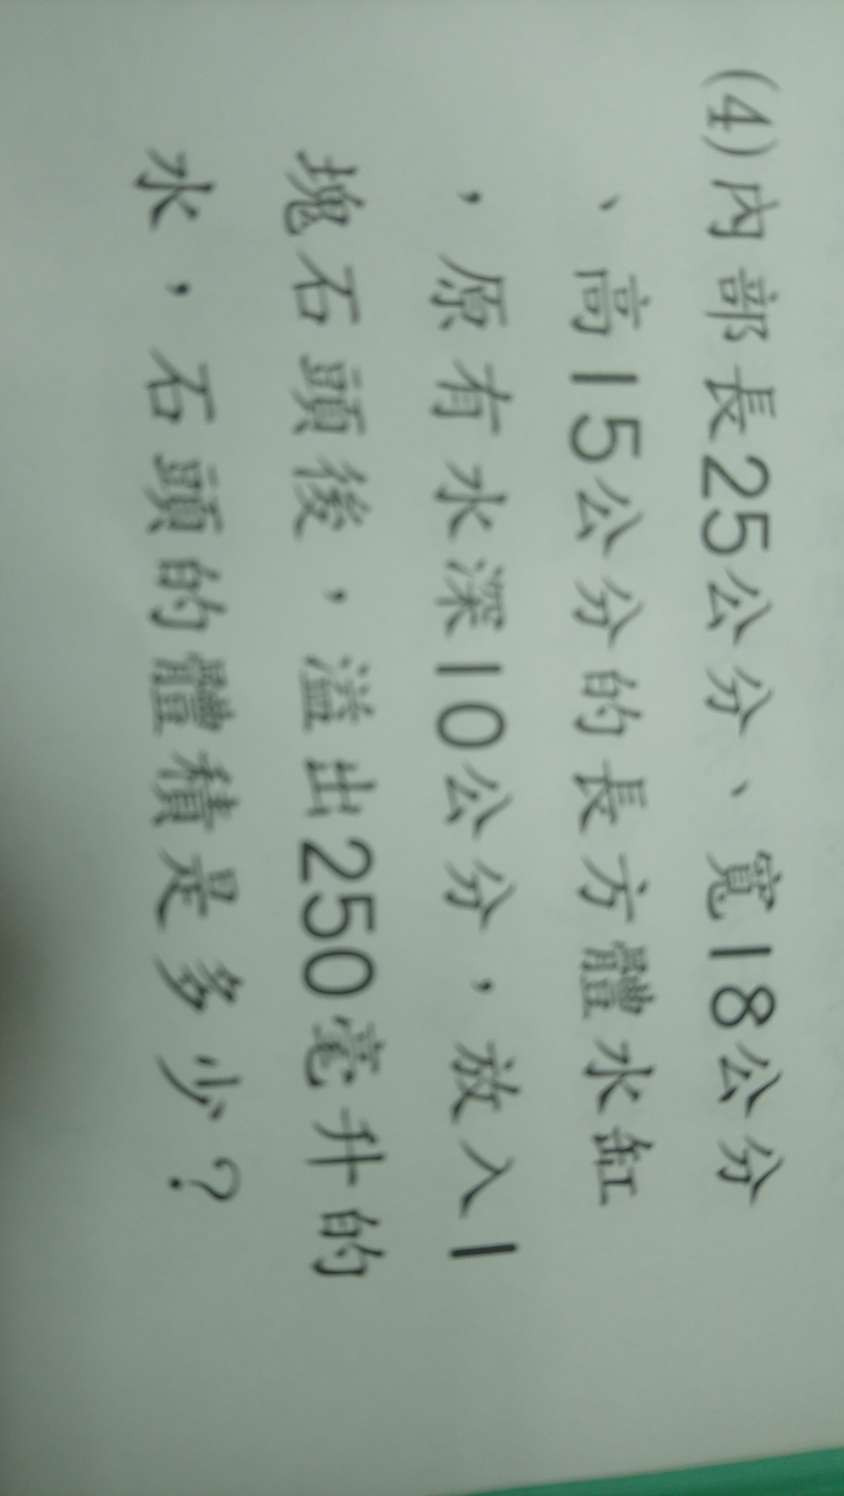 (4)內部長25公分、寬18公分
、高15公分的長方體水缸
，原有水深10公分，放入1
塊石頭後，溢出250毫升的
水，石頭的體積是多少？